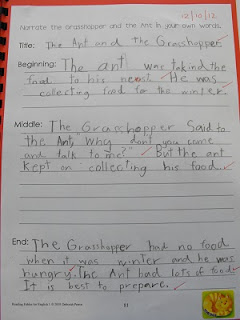 12/10/12
Narrate The Grasshopper and the Ant in your own words.
Title: The Ant and The Grasshopper
Beginning: The ant was takind the
food to his nest. He was
collecting food for the winter.
Middle: The Grasshopper Said to
the Ant, Why don't you come
and talk to me?" But the ant
Kept on collecting his food.
End: The Grasshopper had no food
when it was winter and he was
hungry. The Ant had lots of food.
It is best to prepare.